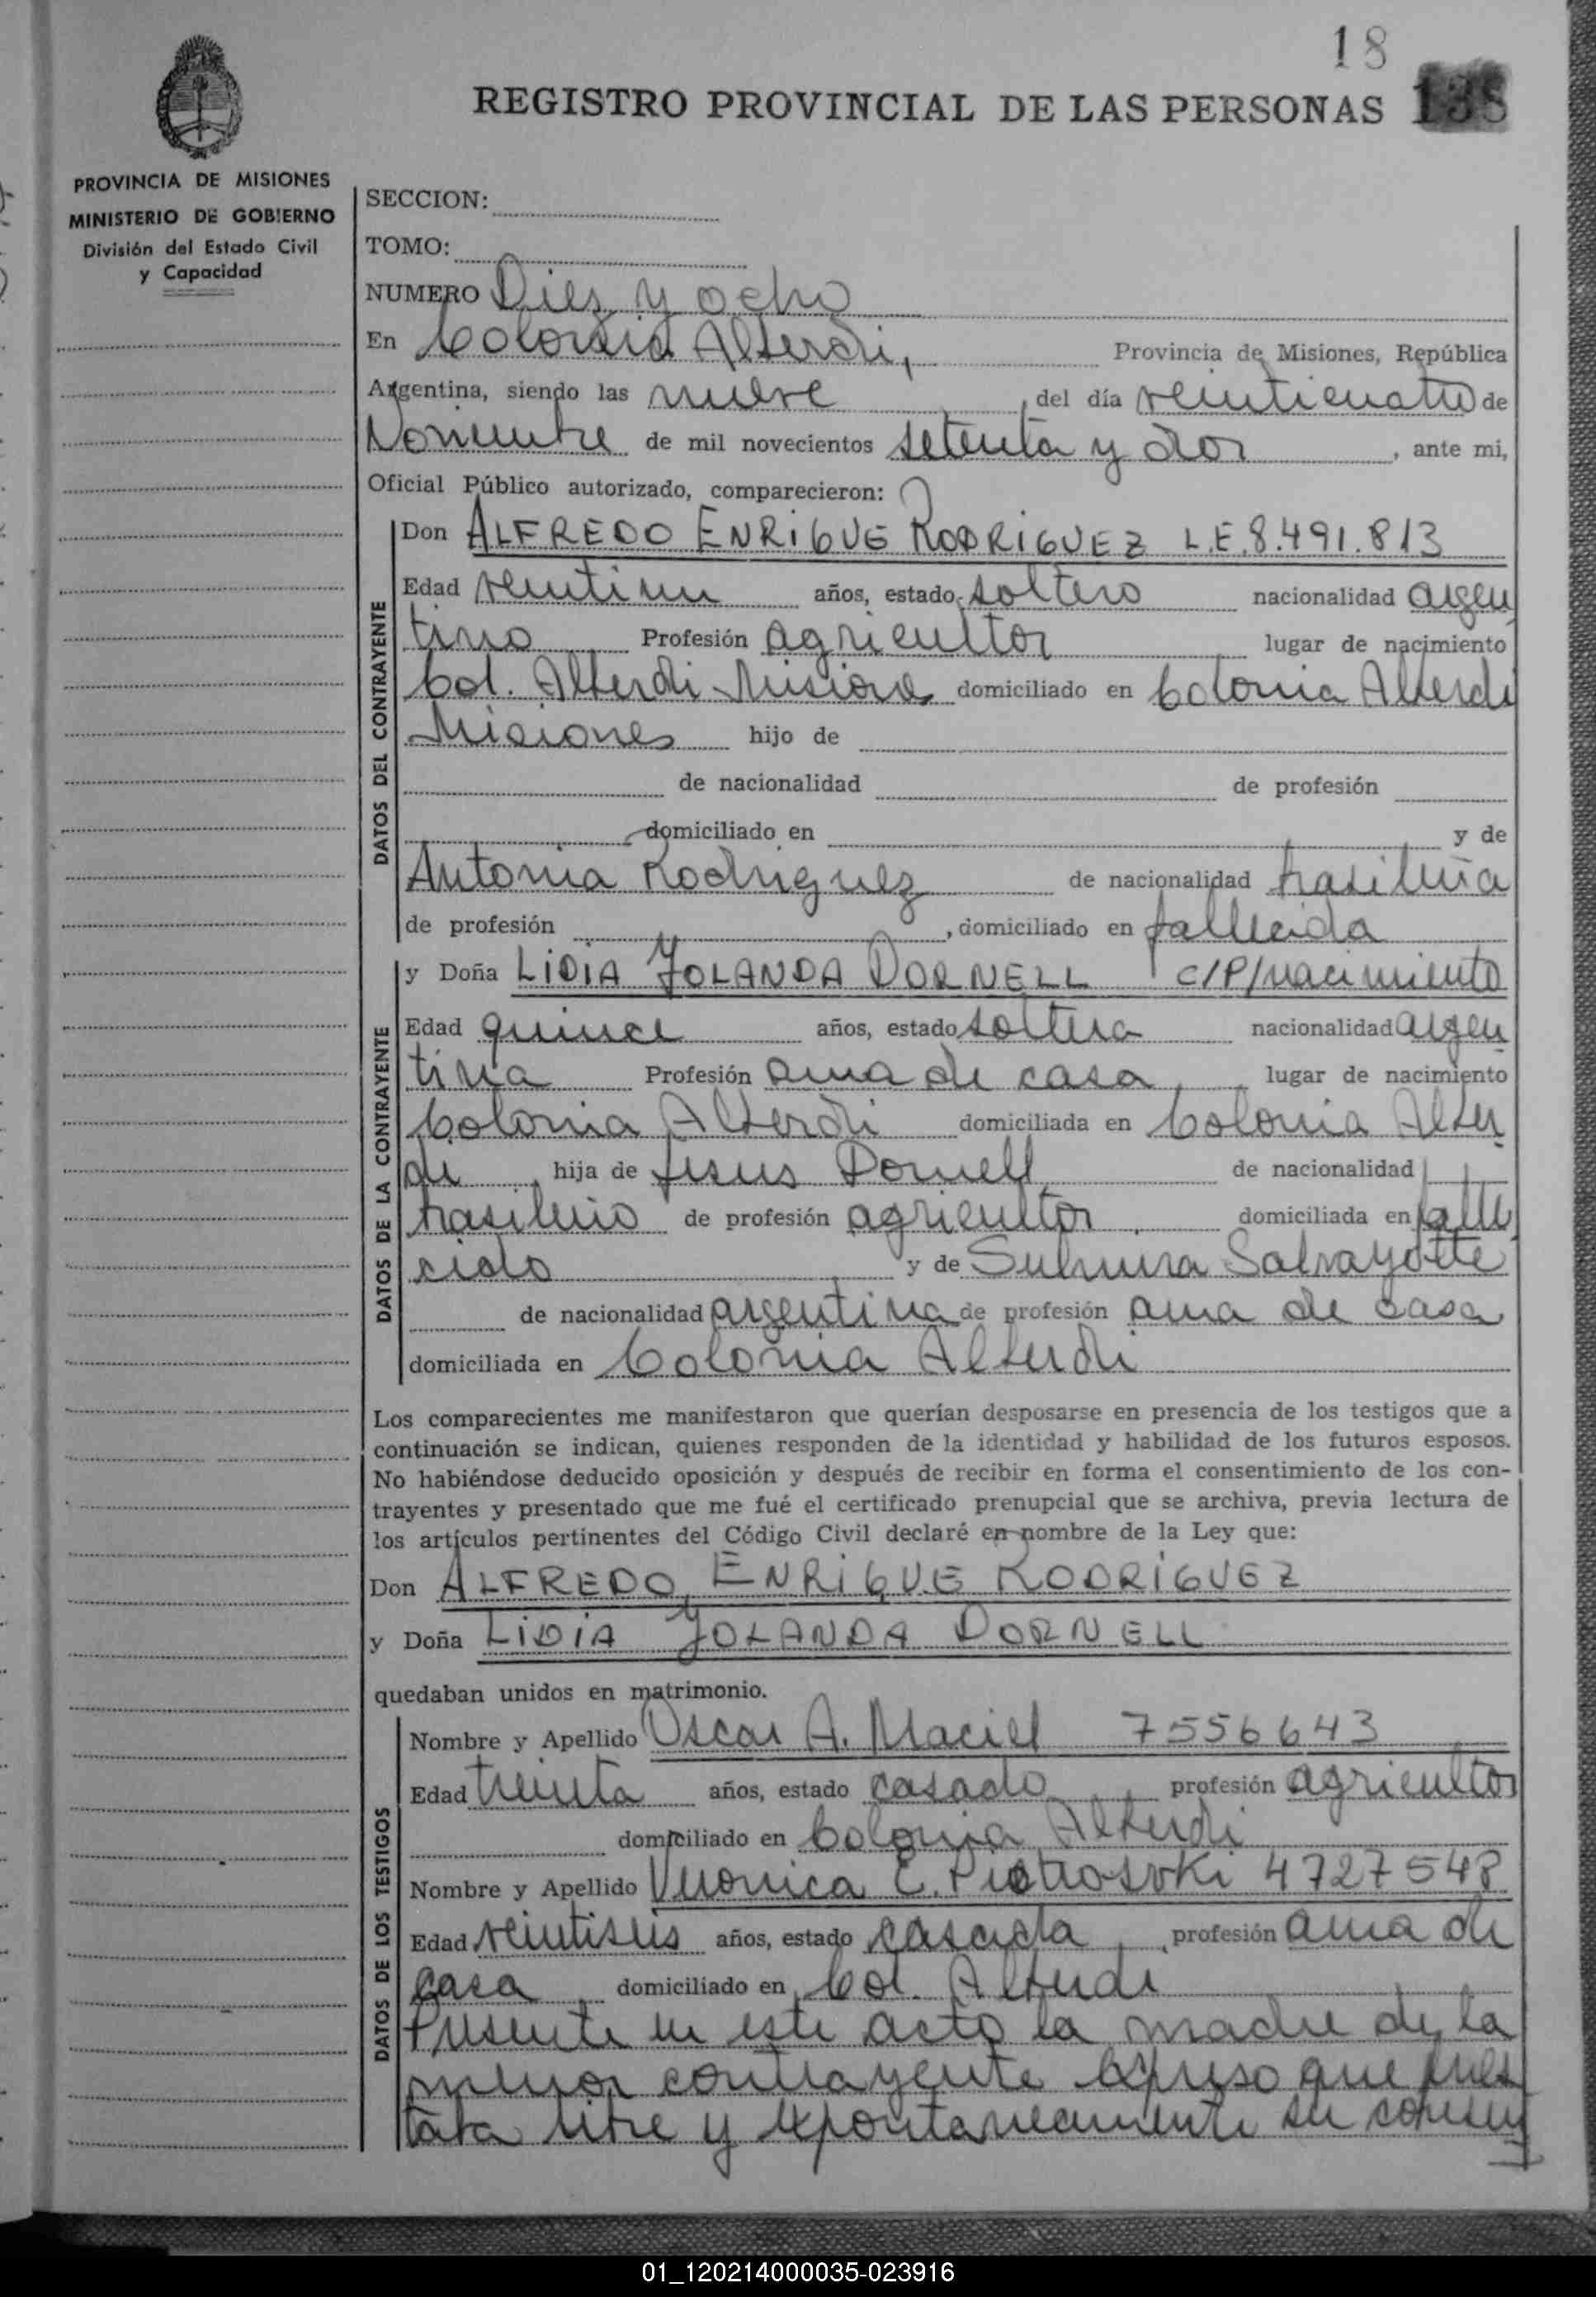 18
REGISTRO PROVINCIAL DE LAS PERSONAS 138
PROVINCIA DE MISIONES
MINISTERIO DE GOBIERNO
División del Estado Civil
y Capacidad
SECCION:
TOMO:
NUMERO Diez y ocho
En Colonia Alberdi, Provincia de Misiones, República
Argentina, siendo las nueve, del día veinticuatro de
Noviembre de mil novecientos setenta y dos, ante mi,
Oficial Público autorizado, comparecieron:
DATOS DEL CONTRAYENTE
Don ALFREDO ENRIQUE RODRIGUEZ L.E.8.491.813
Edad veintiun años, estado soltero nacionalidad argen
tino Profesión agricultor lugar de nacimiento
Col. Alberdi Misiones domiciliado en Colonia Alberdi
Misiones hijo de
de nacionalidad de profesión
domiciliado en y de
Antonia Rodriguez de nacionalidad brasileña
de profesión , domiciliado en fallecida
DATOS DE LA CONTRAYENTE
y Doña LIDIA YOLANDA DORNELL C/P/nacimiento
Edad quince años, estado soltera nacionalidad argen
tina Profesión ama de casa, lugar de nacimiento
Colonia Alberdi domiciliada en Colonia Alber
di, hija de Jesus Dornell de nacionalidad
brasileño de profesión agricultor, domiciliada en falle
cido y de Sulmira Salvayotte
de nacionalidad argentina de profesión ama de casa
domiciliada en Colonia Alberdi
Los comparecientes me manifestaron que querían desposarse en presencia de los testigos que a
continuación se indican, quienes responden de la identidad y habilidad de los futuros esposos.
No habiéndose deducido oposición y después de recibir en forma el consentimiento de los con-
trayentes y presentado que me fué el certificado prenupcial que se archiva, previa lectura de
los artículos pertinentes del Código Civil declaré en nombre de la Ley que:
Don ALFREDO ENRIQUE RODRIGUEZ
y Doña LIDIA YOLANDA DORNELL
quedaban unidos en matrimonio.
DATOS DE LOS TESTIGOS
Nombre y Apellido Oscar A. Maciel 7556643
Edad treinta años, estado casado, profesión agricultor
domiciliado en Colonia Alberdi
Nombre y Apellido Veronica E. Piotrosvki 4727548
Edad veintiseis años, estado casada, profesión ama de
casa domiciliado en Col. Alberdi
Presente en este acto la madre de la
menor contrayente expreso que pres
taba libre y expontaneamente su consen
01_120214000035-023916